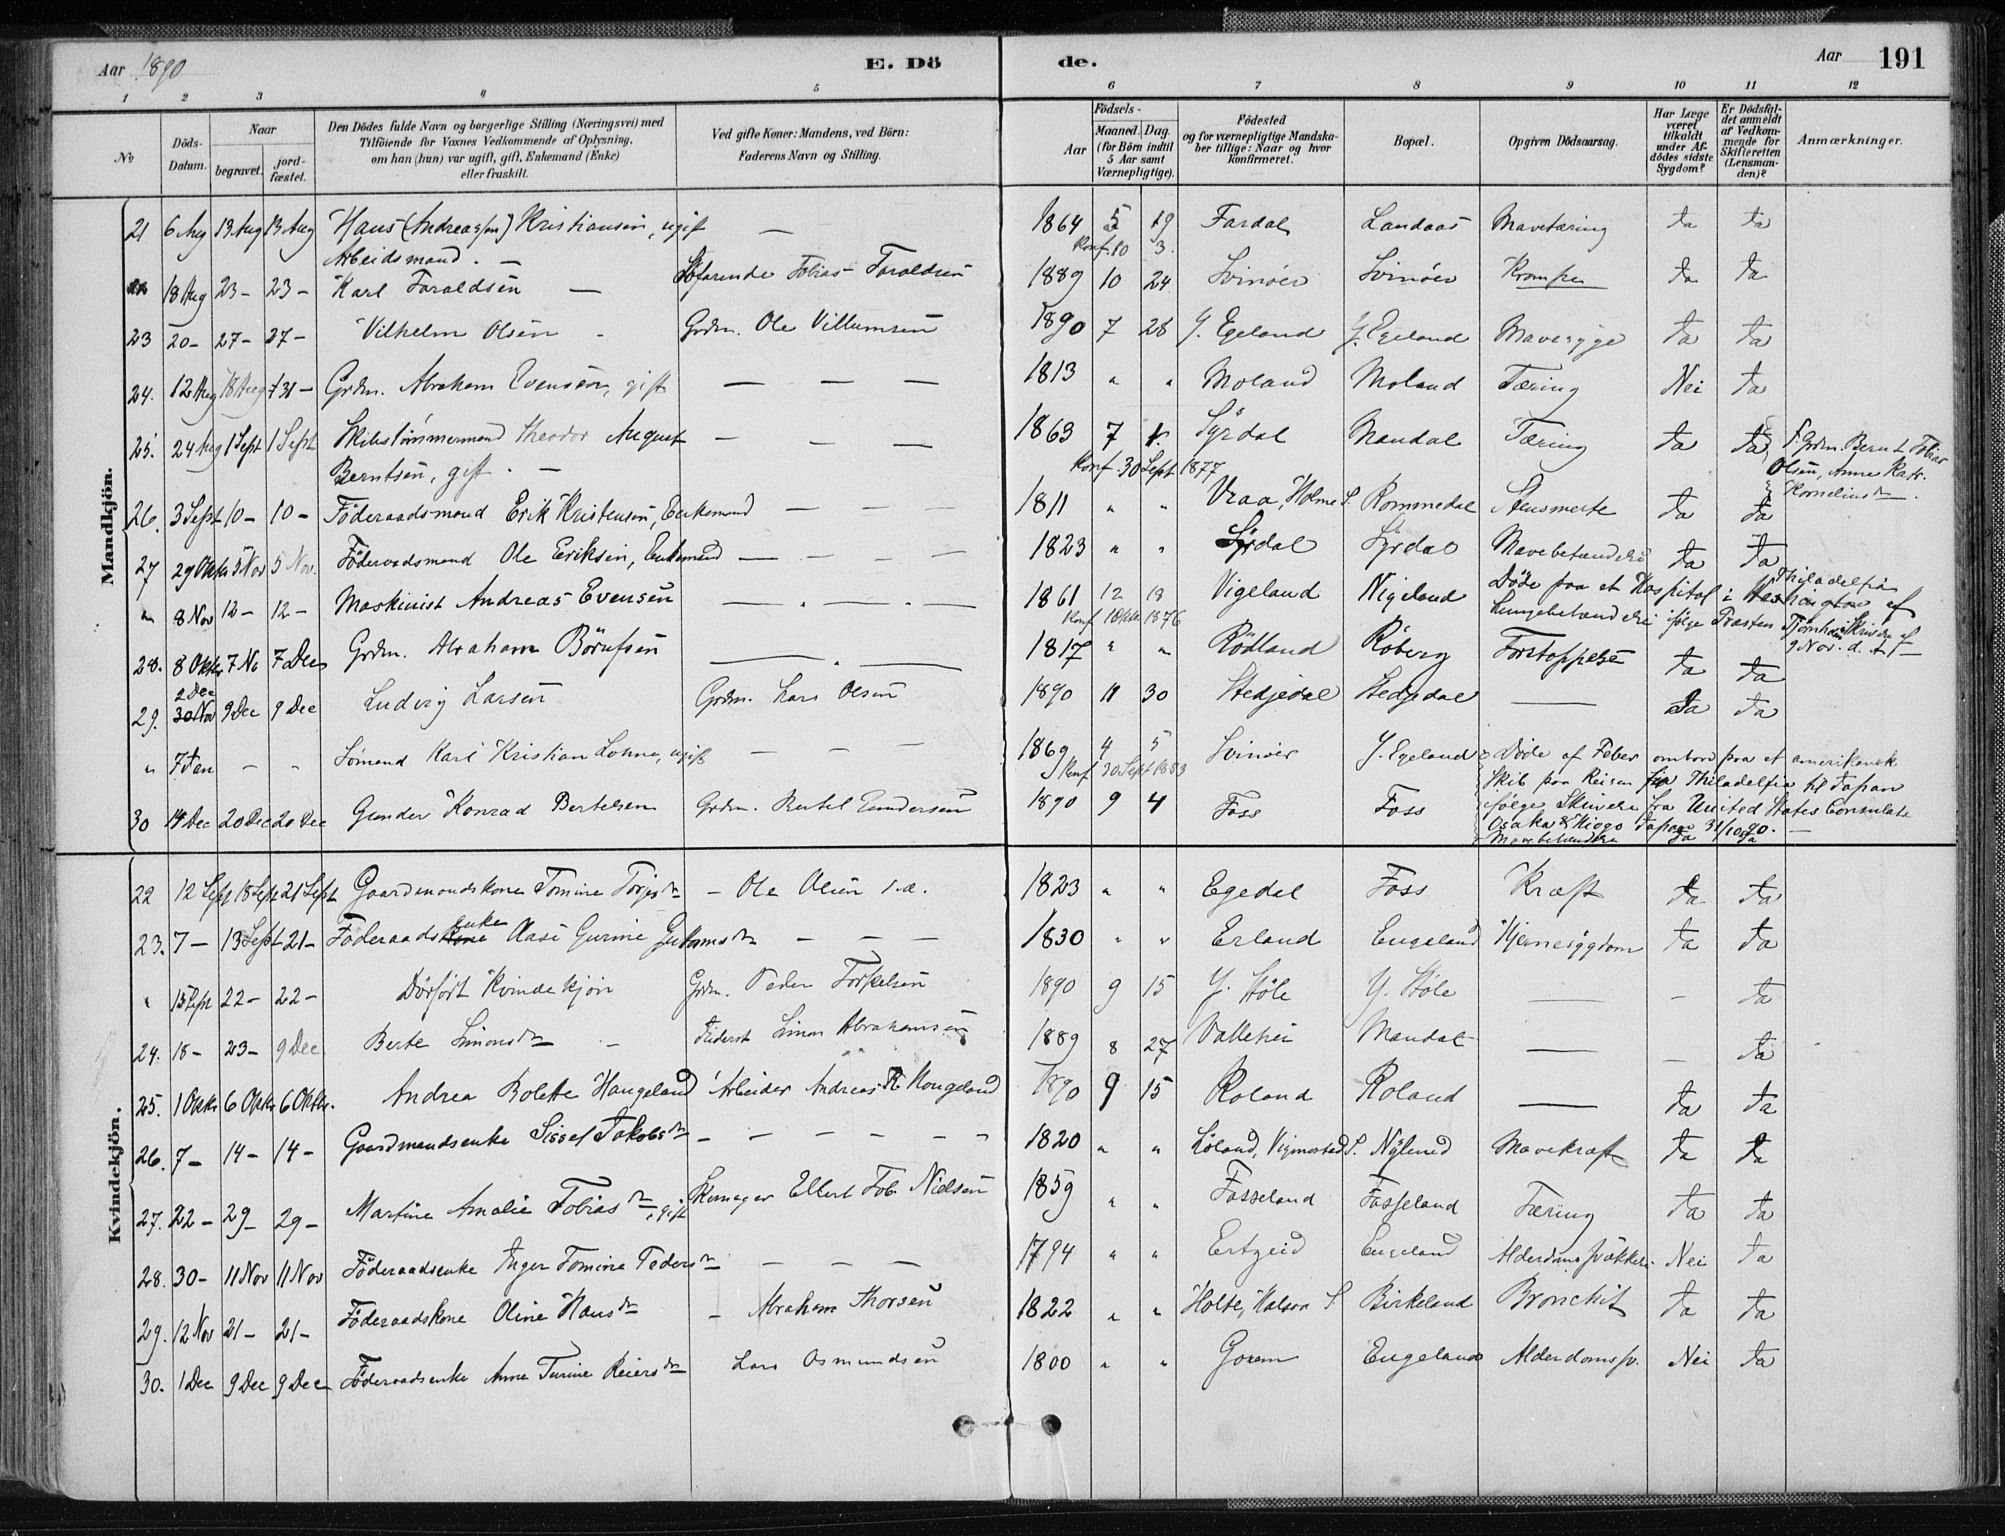 Aar 1890 E. Dö de. Aar 191
1 2 3 4 5 6 7 8 9 10 11 12
No
Döds-Datum.
Naar
begravet. jord-fæstet.
Den Dödes fulde Navn og borgerlige Stilling (Næringsvei) med
Tilföiende for Voxnes Vedkommende af Oplysning,
om han (hun) var ugift, gift, Enkemand (Enke)
eller fraskilt.
Ved gifte Koner: Mandens, ved Börn:
Faderens Navn og Stilling.
Födsels-
Aar Maaned. Dag.
(for Börn indtil
5 Aar samt
Værnepligtige).
Födested
og for værnepligtige Mandska-
ber tillige: Naar og hvor
Konfirmeret.
Bopæl.
Opgiven Dödsaarsag.
Har Læge
været
tilkaldt
under Af-
dödes sidste
Sygdom?
Er Dödsfal-
det anmeldt
af Vedkom-
mende for
Skifteretten
(Lensman-
den)?
Anmærkninger.
Mandkjön.
21 6 Aug 13 Aug 13 Aug Hans (Andreassen) Kristiansen, ugift — 1864 5 19 Fardal Landaas Mavetæring Ja Ja
Arbeidsmand. — Konf. 10 3.
18 Aug 23 – 23 – Karl Taraldsen — Söfarende Tobias Taraldsen 1889 10 24 Svinöer Svinöer Krampe Ja Ja
23 20 – 27 – 27 – Vilhelm Olsen Grdm. Ole Villumsen 1890 7 28 Y. Egeland Y. Egeland Mavesyge Ja Ja
24. 12 Aug 18 Aug 31 – Grdm. Abraham Evensen, gift — — — 1813 " " Moland Moland Tæring Nei Ja
25. 24 Aug 1 Sept 1 Sept Skibstömmermand Theodor August — — — 1863 7 Syrdal Mandal Tæring Ja Ja Grdm. Bernt Tobias
Berntsen, gift. — Konf. 30 Sept 1877 Olsen, Anne Kath.
Kornelius dtr.
26. 3 Sept 10 – 10 – Föderaadsmand Erik Kristensen, Enkemand — — — 1811 " " Vraa, Holme S. Rommedal Stensmerte Ja Ja
27 29 Oktbr 5 Nov 5 Nov. Föderaadsmand Ole Eriksen, Enkemand — — — 1823 " " Syrdal Syrdal Mavebetændelse Ja Ja
" 8 Nov 12 – 12 – Maskinist Andreas Evensen — — — 1861 12 18 Vigeland Vigeland Döde paa et Hospital i Philadelphia af
Konf 1 Oktbr 1876 Lungebetændelse ifölge Præsten Skrivelse af
9 Nov. d. A.
28. 8 Oktbr 7 No 7 Dec Grdm. Abraham Börufsen — — 1817 " " Rödland Röberg Forstoppelse Ja Ja
2 Dec
29. 30 Nov 9 Dec 9 Dec Ludvig Larsen Grdm. Lars Olsen 1890 11 30 Stedjedal Stedjedal — Ja Ja
" 7 Jan – – Sömand Karl Kristian Lohne, ugift — — 1869 4 5 Svinöer Y. Egeland Döde af Feber ombord paa et amerikansk
Konf 30 Sept 1883 Skib paa Reisen fra Philadelfia til Japan
30 14 Dec 20 Dec 20 Dec Gunder Konrad Bertelsen Grdm. Bertel Gundersen 1890 9 4 Foss Foss ifölge Skrivelse fra United States Consulate
Osaka & Hiogo Japan 31/10 90. —
Mavebetændelse Ja Ja
Kvindekjön.
22 12 Sept 18 Sept 21 Sept Gaardmandskone Tomine Torjes dtr – Ole Olsen s.a. 1823 " " Egedal Foss Kræft Ja Ja
23. 7 – 13 Sept 21 – Föderaadskone enke Aase Gurine Guttorms dtr — — — 1830 " " Erland Engeland Hjernesygdom Ja Ja
" 15 Sept 22 – 22 – Dödfödt Kvindekjön Grdm. Peder Torkelsen 1890 9 15 Y. Stöle Y. Stöle — – Ja
24. 18 – 23 – 9 Dec Berte Simons dtr – Simon Abrahamsen 1889 8 27 Vallehei Mandal — – Ja
25. 1 Oktbr 6 Oktbr 6 Oktbr. Andrea Bolette Haugeland Arbeider Andreas Haugeland 1890 9 15 Roland Roland — Ja Ja
26. 7 – 14 – 14 – Gaardmandsenke Sissel Jakobs dtr — — — 1820 " " Löland, Vigmostad S. Nylend Mavekræft Ja Ja
27. 22 – 29 – 29 – Martine Amalie Tobias dtr, gift Skomager Ellert Tob. Nielsen 1859 " " Fasseland Fasseland Tæring Ja Ja
28. 30 – 11 Nov 11 Nov Föderaadsenke Inger Tomine Peders dtr — — — 1794 " " Ertzeid Engeland Alderdomssvækkelse Nei Ja
29. 12 Nov 21 – 21 – Föderaadskone Oline Hans dtr – Abraham Thorsen 1822 " " Holte, Halsaa S Birkeland Bronchit Ja Ja
30. 1 Dec 9 Dec 9 Dec Föderaadsenke Anne Turine Reiers dtr Lars Osmundsen 1800 " " Goxem Engeland Alderdomssv. Nei Ja